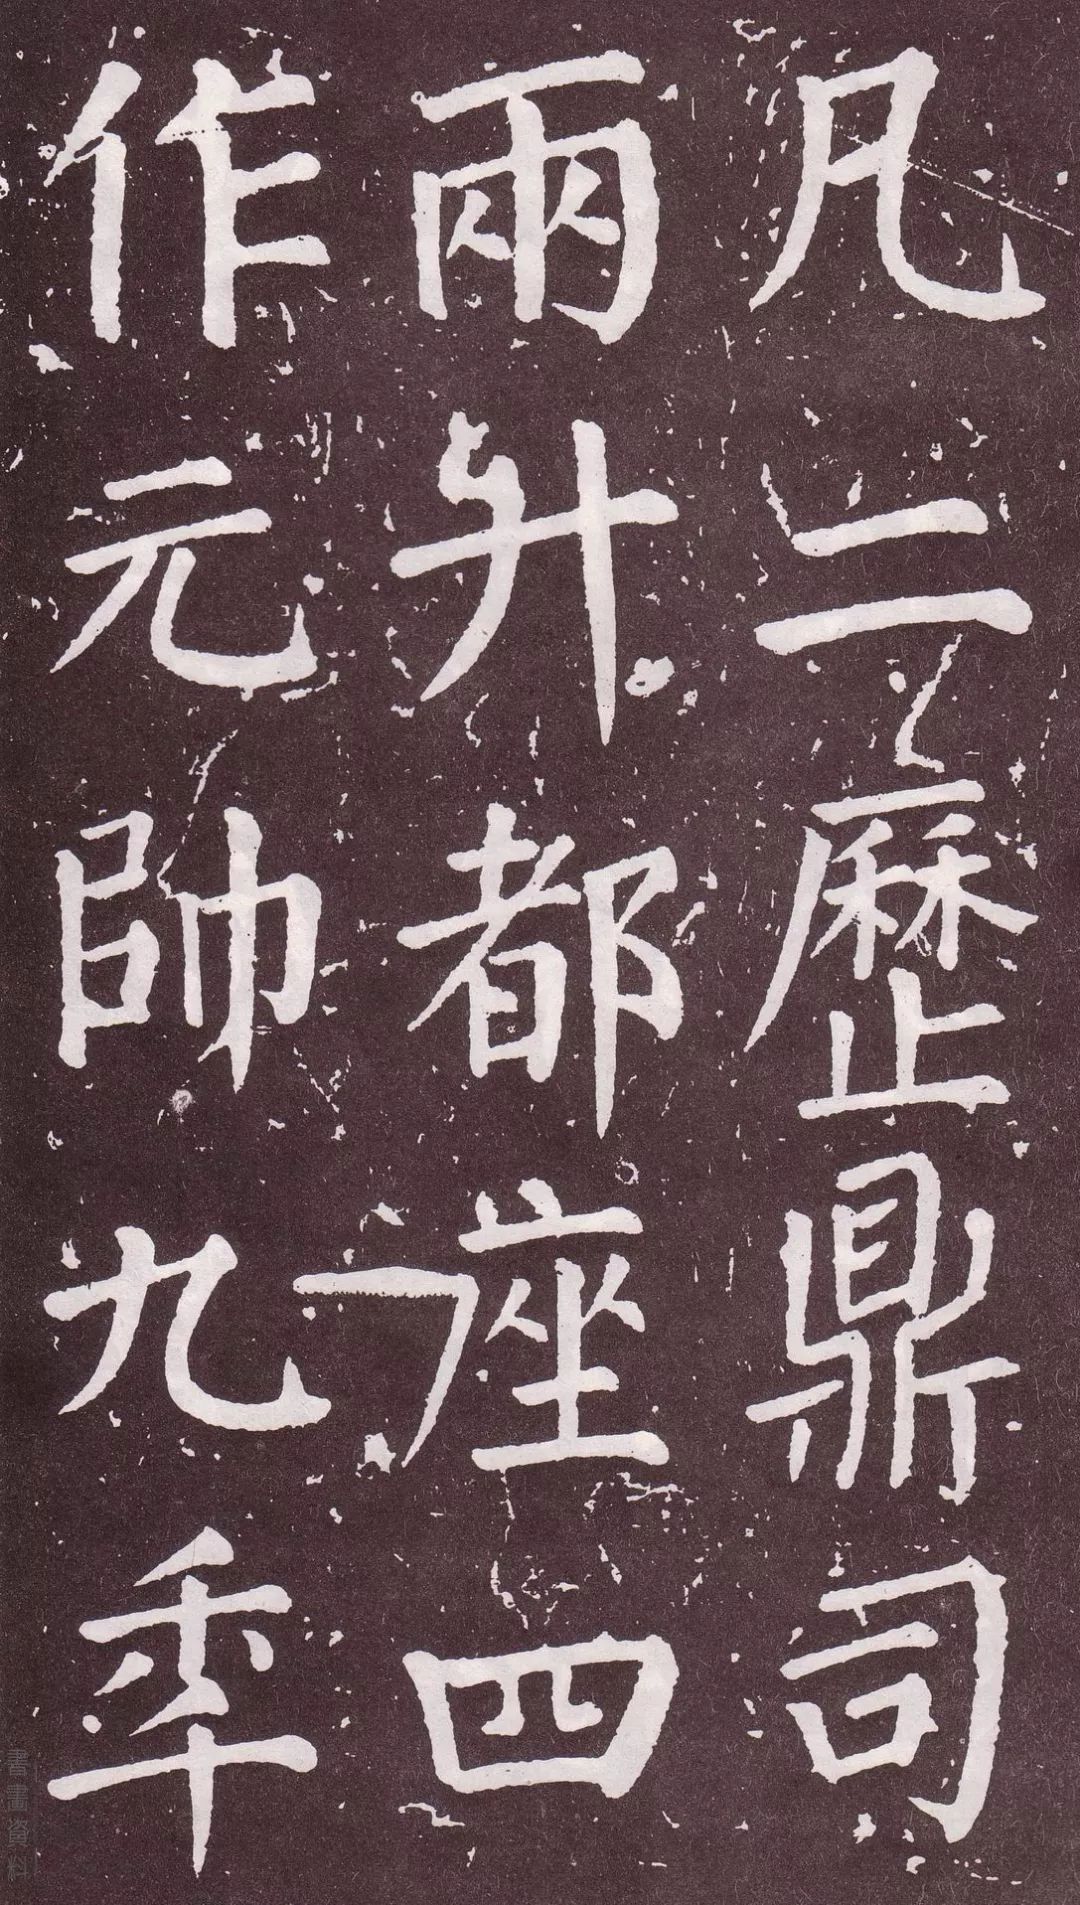 凡二歷鼎司
兩升都座四
作元帥九年
書畫資料